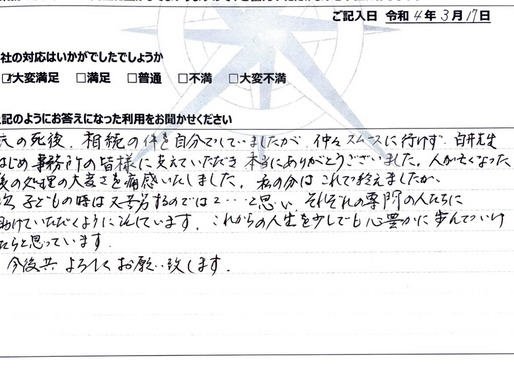 ご記入日 令和 4 年 3 月 17 日
社の対応はいかがでしたでしょうか
☑大変満足 □満足 □普通 □不満 □大変不満
記のようにお答えになった利用をお聞かせください
の死後、相続の件を自分でしていましたが、仲々スムースに行けず、白井先生
はじめ事務所の皆様に支えていただき本当にありがとうございました。人が亡くなった
後の処理の大変さを痛感いたしました。私の分はこれで終えましたが、
次、子どもの時は又苦労するのでは?・・・と思い、それぞれの専門の人たちに
助けていただくようにしています。これからの人生を少しでも心豊かに歩んでいけ
たらと思っています。
今後共よろしくお願い致します。